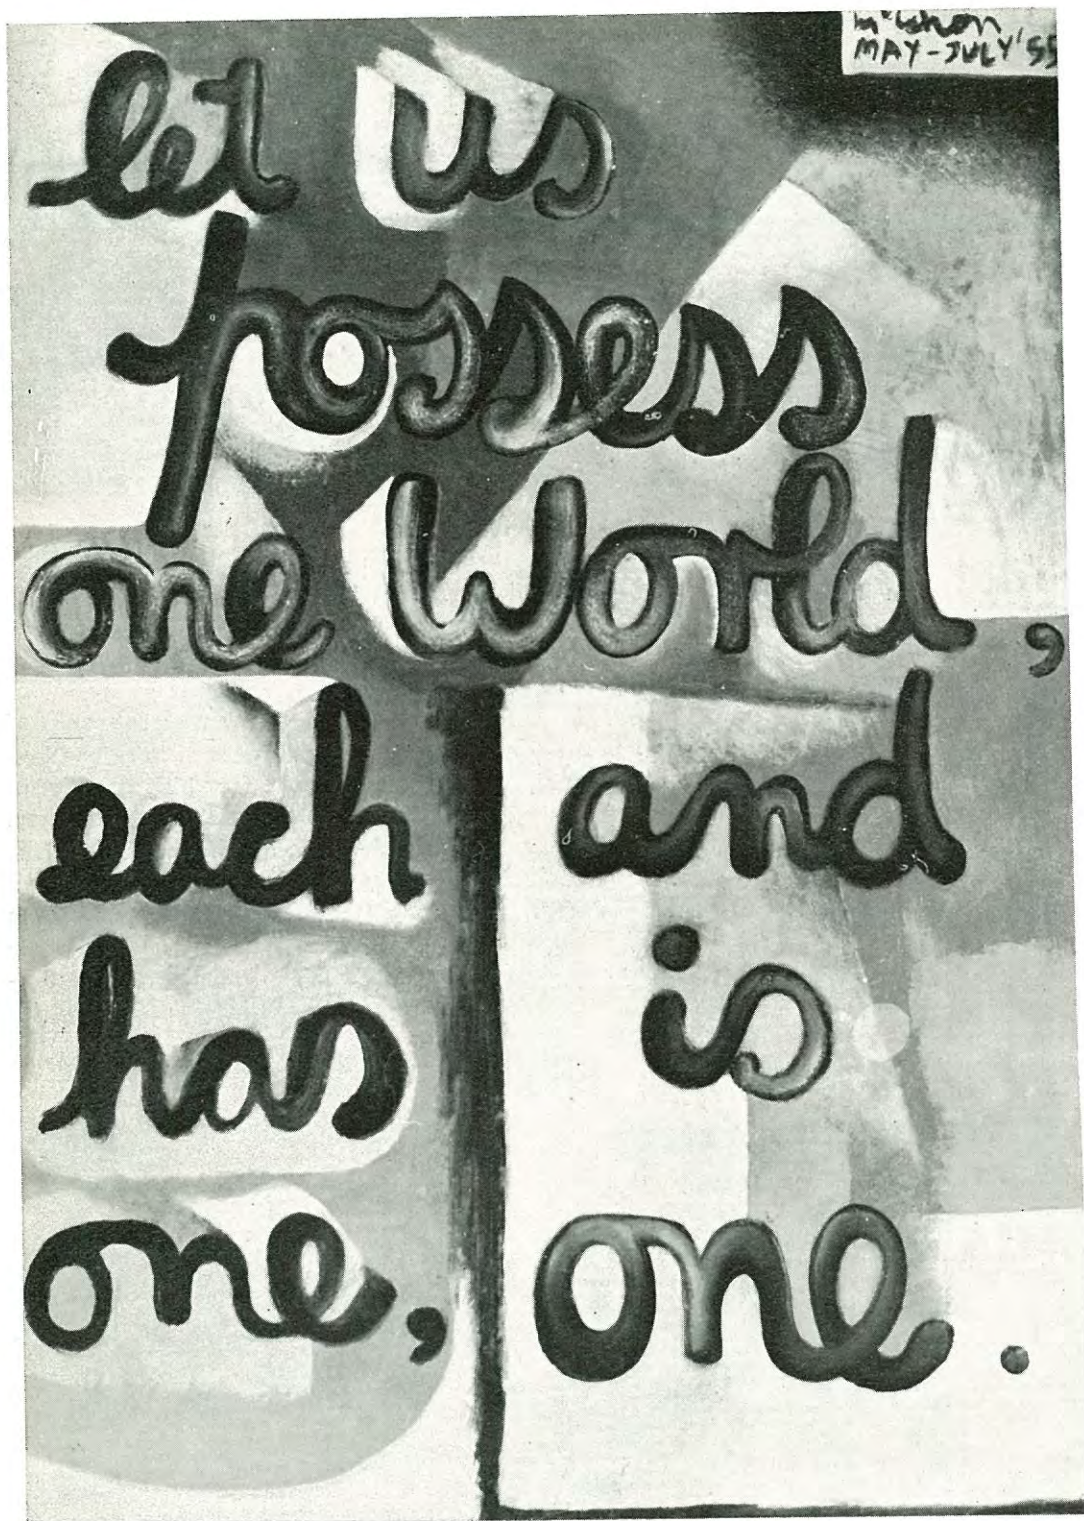 McCahon
MAY-JULY '55
let us
possess
one World,
each
has
one,
and
is
one.